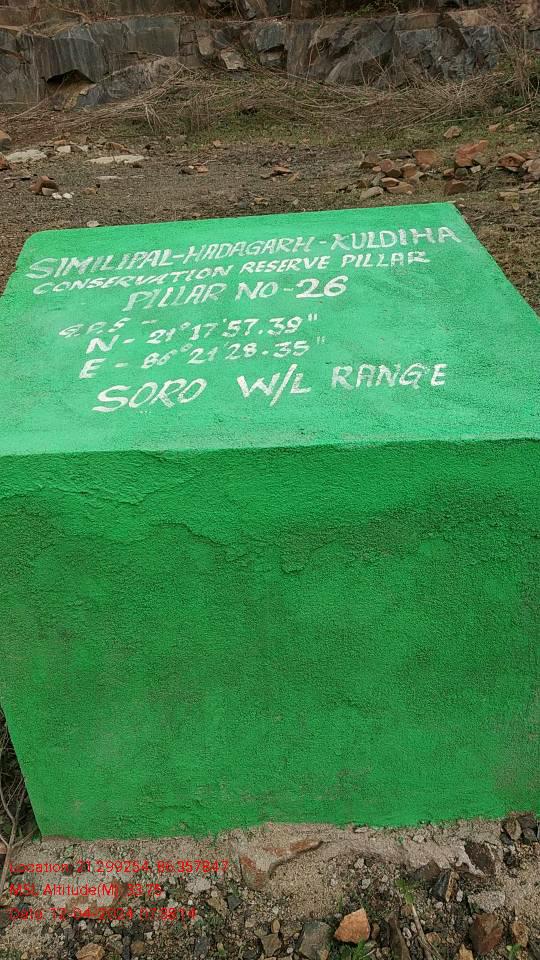 SIMILIPAL-HADAGARH-KULDIHA
CONSERVATION RESERVE PILLAR
PILLAR NO-26
G.P.S -
N - 21° 17' 57.39"
E - 86° 21' 28.35"
SORO W/L RANGE
Location: 21.299254, 86.357847
MSL Altitude(M): 33.75
Date: 12-04-2024